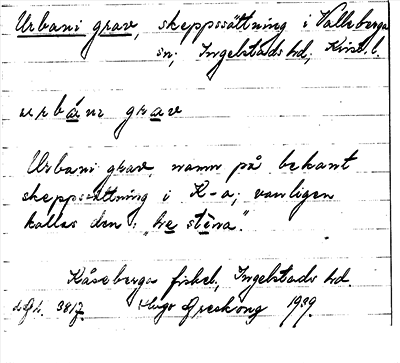 Urbani grav, skeppssättning i Valleberga
sn; Ingelstads hd; Krist. l.
urbáni grav
Urbani grav, namn på bekant
skeppssättning i K-a; vanligen
kallas den: "he stèna".
Kåseberga fiskel., Ingelstads hd.
3817. Hugo Areskoug 1939.